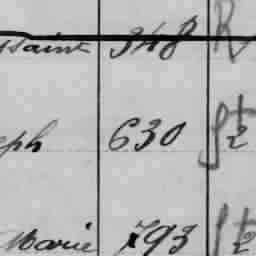 ssaint 348 R
eph 630 1/2
Marie 793 1/2